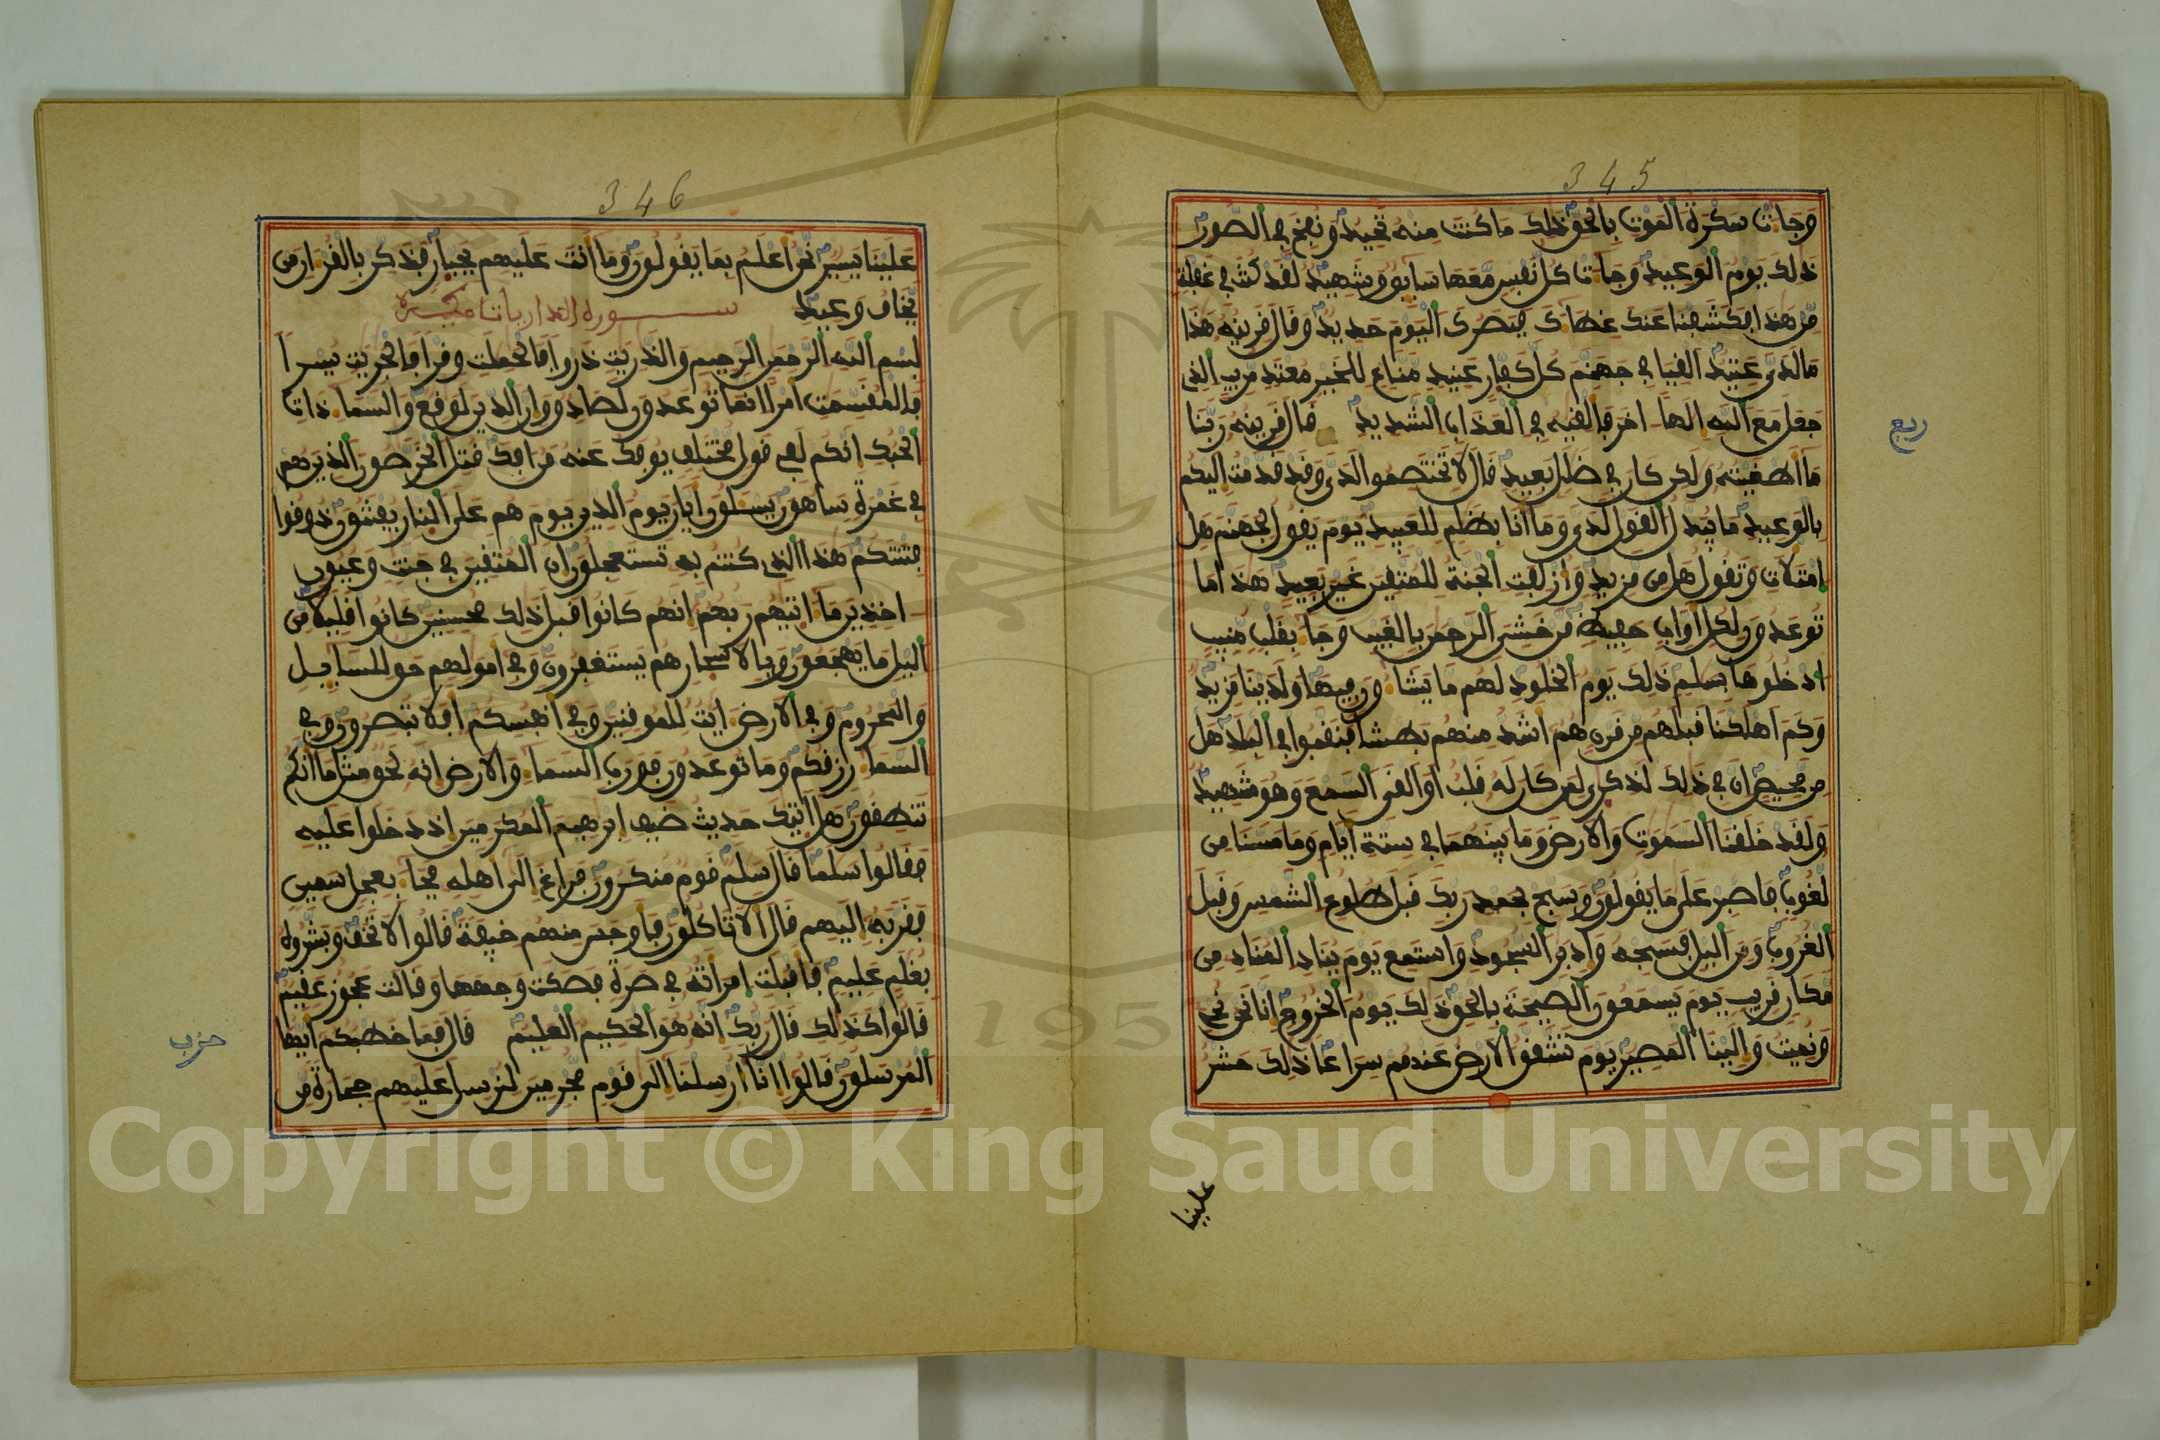 345
وجات سكرة الموت بالحق ذلك ما كنت منه تحيد ونفخ في الصور
ذلك يوم الوعيد وجات كل نفس معها سايق وشهيد لقد كنت في غفلة
من هذا فكشفنا عنك غطاك فبصرك اليوم حديد وقال قرينه هذا
ما لدي عتيد القيا في جهنم كل كفار عنيد مناع للخير معتد مريب الذي
جعل مع الله الها اخر فالقيه في العذاب الشديد قال قرينه ربنا
ما اطغيته ولكن كان في ضلل بعيد قال لا تختصموا لدي وقد قدمت اليكم
بالوعيد ما يبدل القول لدي وما انا بظلم للعبيد يوم يقول لجهنم هل
امتلات وتقول هل من مزيد وازلفت الجنة للمتقين غير بعيد هذا ما
توعدون لكل اواب حفيظ من خشي الرحمن بالغيب وجا بقلب منيب
ادخلوها بسلم ذلك يوم الخلود لهم ما يشا ون فيها ولدينا مزيد
وكم اهلكنا قبلهم من قرن هم اشد منهم بطشا فنقبوا في البلد هل
من محيص ان في ذلك لذكرى لمن كان له قلب او القى السمع وهو شهيد
ولقد خلقنا السموت والارض وما بينهما في ستة ايام وما مسنا من
لغوب فاصبر على ما يقولون وسبح بحمد ربك قبل طلوع الشمس وقبل
الغروب ومن اليل فسبحه وادبر السجود واستمع يوم يناد المناد من
مكان قريب يوم يسمعون الصيحة بالحق ذلك يوم الخروج انا نحن نحي
ونميت والينا المصير يوم تشقق الارض عنهم سراعا ذلك حشر
ربع
علينا
346
علينا يسير نحن اعلم بما يقولون وما انت عليهم بجبار فذكر بالقران من
يخاف وعيد سورة الذاريات مكية
بسم الله الرحمن الرحيم والذريت ذروا فالحملت وقرا فالجريت يسرا
فالمقسمت امرا انما توعدون لصادق وان الدين لوقع والسما ذات
الحبك انكم لفي قول مختلف يوفك عنه من افك قتل الخرصون الذين هم
في غمرة ساهون يسلون ايان يوم الدين يوم هم على النار يفتنون ذوقوا
فتنتكم هذا الذي كنتم به تستعجلون ان المتقين في جنت وعيون
اخذين ما اتيهم ربهم انهم كانوا قبل ذلك محسنين كانوا قليلا من
اليل ما يهجعون وبالاسحار هم يستغفرون وفي امولهم حق للسايل
والمحروم وفي الارض ايت للموقنين وفي انفسكم افلا تبصرون وفي
السما رزقكم وما توعدون فورب السما والارض انه لحق مثل ما انكم
تنطقون هل اتيك حديث ضيف ابرهيم المكرمين اذ دخلوا عليه
فقالوا سلما قال سلم قوم منكرون فراغ الى اهله فجا بعجل سمين
فقربه اليهم قال الا تاكلون فاوجس منهم خيفة قالوا لا تخف وبشروه
بغلم عليم فاقبلت امراته في صرة فصكت وجهها وقالت عجوز عقيم
قالوا كذلك قال ربك انه هو الحكيم العليم قال فما خطبكم ايها
المرسلون قالوا انا ارسلنا الى قوم مجرمين لنرسل عليهم حجارة من
حزب
Copyright © King Saud University
195